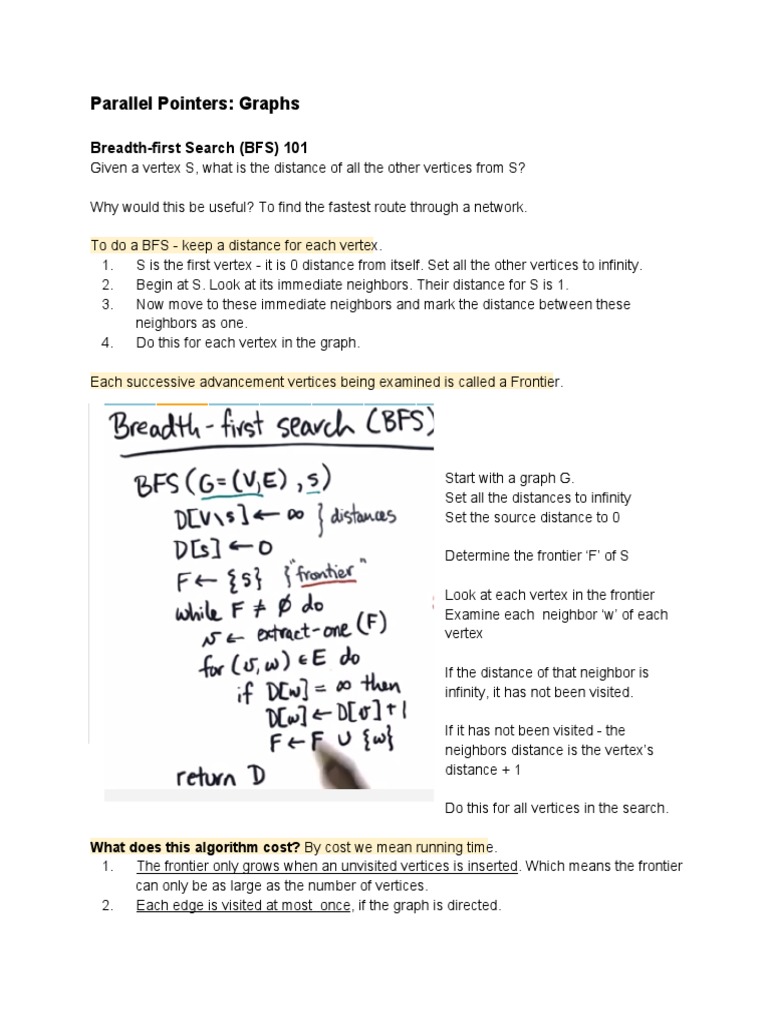 Parallel Pointers: Graphs
Breadth-first Search (BFS) 101
Given a vertex S, what is the distance of all the other vertices from S?
Why would this be useful? To find the fastest route through a network.
To do a BFS - keep a distance for each vertex.
1. S is the first vertex - it is 0 distance from itself. Set all the other vertices to infinity.
2. Begin at S. Look at its immediate neighbors. Their distance for S is 1.
3. Now move to these immediate neighbors and mark the distance between these
neighbors as one.
4. Do this for each vertex in the graph.
Each successive advancement vertices being examined is called a Frontier.
Breadth-first search (BFS)
BFS(G=(V,E), s)
D[V\s] ← ∞ } distances
D[s] ← 0
F ← {s} } "frontier"
while F ≠ ∅ do
v ← extract-one (F)
for (v,w) ∈ E do
if D[w] = ∞ then
D[w] ← D[v]+1
F ← F ∪ {w}
return D
Start with a graph G.
Set all the distances to infinity
Set the source distance to 0
Determine the frontier ‘F’ of S
Look at each vertex in the frontier
Examine each neighbor ‘w’ of each
vertex
If the distance of that neighbor is
infinity, it has not been visited.
If it has not been visited - the
neighbors distance is the vertex’s
distance + 1
Do this for all vertices in the search.
What does this algorithm cost? By cost we mean running time.
1. The frontier only grows when an unvisited vertices is inserted. Which means the frontier
can only be as large as the number of vertices.
2. Each edge is visited at most once, if the graph is directed.